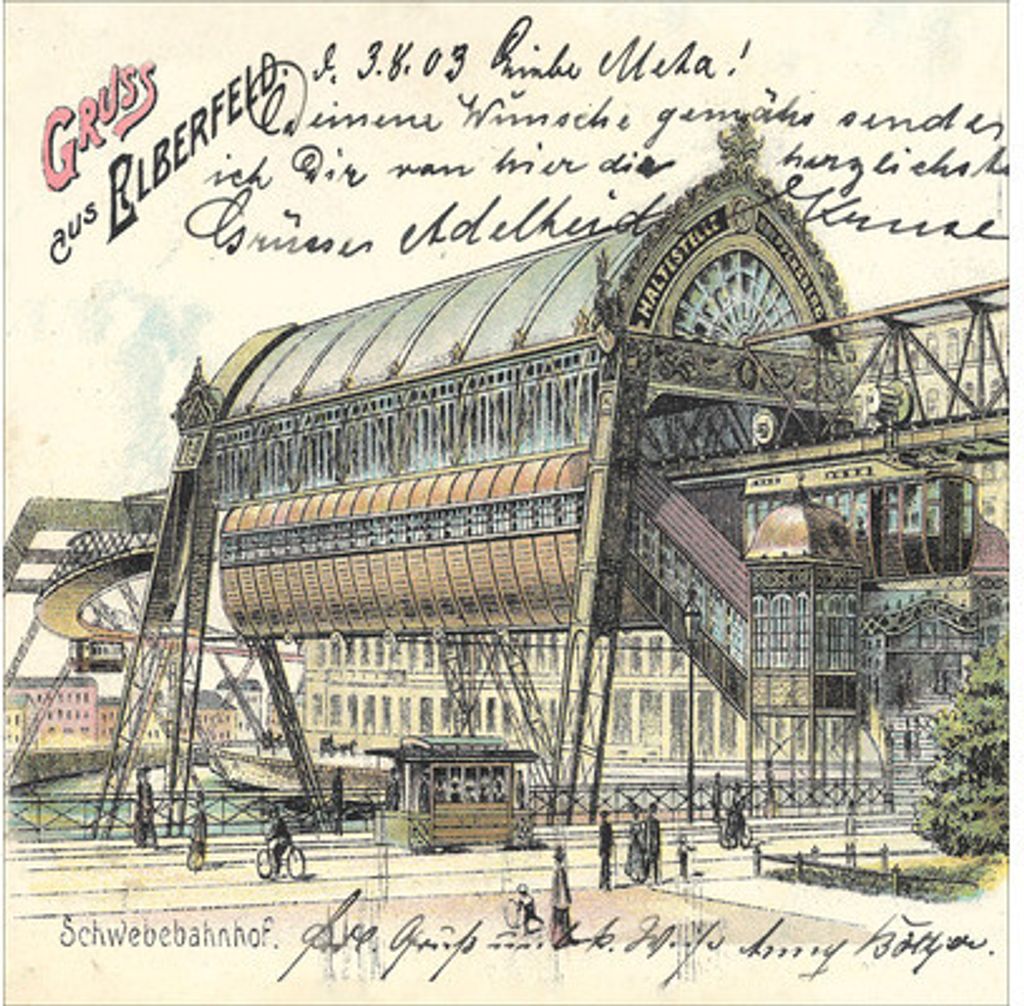 GRUSS
aus ELBERFELD.
d. 3.8.03 Liebe Meta!
Deinene Wunsche gemähs sendes
ich Dir von hier die herzlichste
Grüsses Adelheid Kruse
HALTESTELLE
Schwebebahnhof.
Gruß Anny